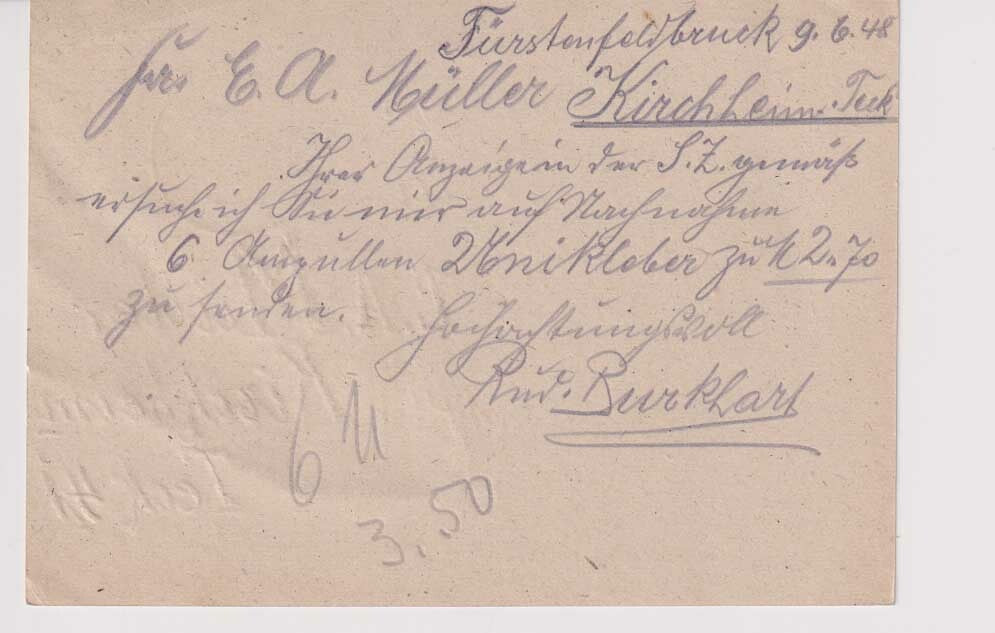 Fürstenfeldbruck 9. 6. 48
E. A. Müller Kirchheim-Teck
Ihrer Anzeige in der S. Z. gemäß
ersuche ich Sie mir auf Nachnahme
6 Ampullen Unikleber zu M 2.70
zu senden. Hochachtungsvoll
Rud. Burkhart
6 U
3.50